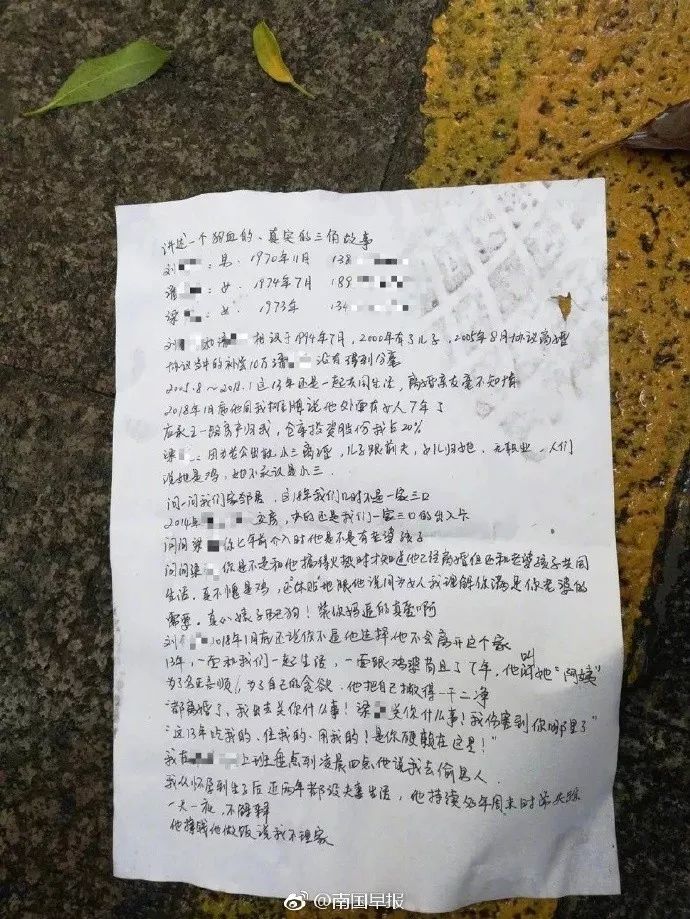 讲述一个狗血的、真实的三角故事
刘 : 男: 1970年11月 138
潘 : 女: 1974年7月 189
梁 : 女: 1973年 134
刘 和潘 相识于1994年7月,2000年有了儿子,2005年8月协议离婚
协议当中的补偿10万潘 没有得到分毫
2005.8~2018.1这13年还是一起共同生活,离婚亲友毫不知情
2018年1月前他因我 说他外面有女人7年了
应承五一路房产归我,仓库投资股份我占20%
梁 因为老公出轨小三离婚,儿子跟前夫,女儿归她,无职业,人们
说她是鸡,她不承认是小三.
问一问我们家邻居,这13年我们几时不是一家三口
2014年 交房,办的还是我们一家三口的出入卡
问问梁 你七年前介入时他是不是有老婆孩子
问问梁 你是不是和他搞得火热时才知道他已经离婚但还和老婆孩子共同
生活.真不愧是鸡,还"体贴"地跟他说同为女人我理解你满足你老婆的
需要.真心婊子配狗!禁
刘 2018年1月前还说你不是他选择他不会离开这个家
13年,一面和我们一起生活,一面跟鸡婆苟且了7年,他 叫她"阿姨"
为了名正言顺,为了自己的贪欲.他把自己撇得一干二净
"都离婚了、我出去关你什么事!梁 关你什么事!我伤害到你哪里了"
"这13年吃我的、住我的、用我的!是你硬赖在这里!"
我在 上班盘点到凌晨四点他说我去偷男人.
我从怀孕到生子后近两年都没夫妻生活,他持续多年周末时常失踪
一天一夜,不解释
他 他做饭说我不理家
@南国早报